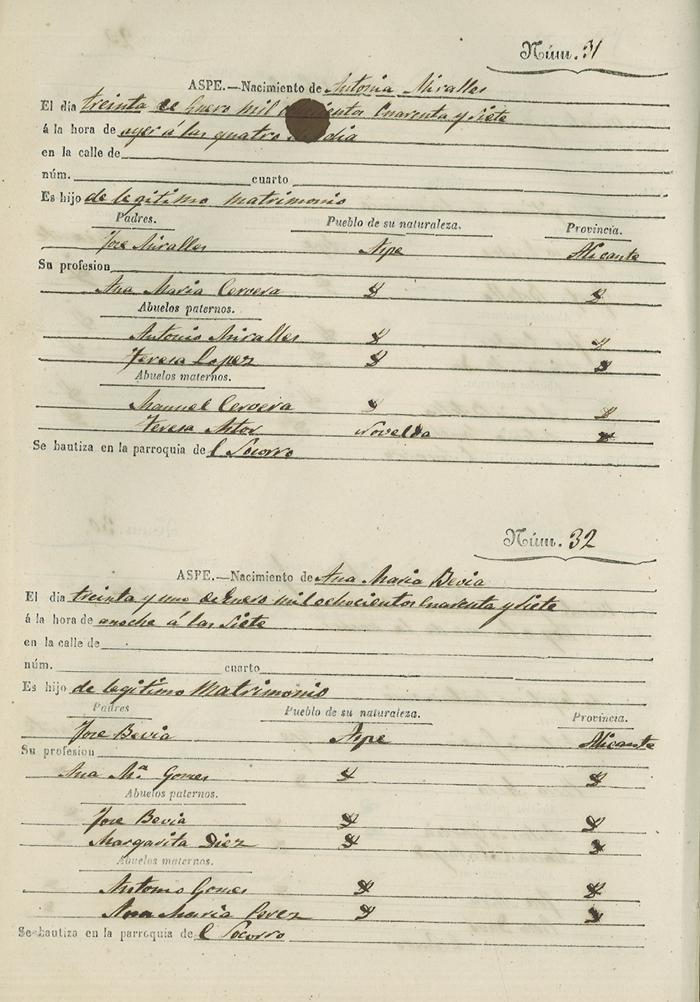 Núm. 31
ASPE.—Nacimiento de Antonia Miralles
El dia treinta de Enero mil ochocientos Cuarenta y Siete
á la hora de ayer á las quatro del dia
en la calle de
núm. cuarto
Es hijo de legitimo matrimonio
Padres. Pueblo de su naturaleza. Provincia.
Jose Miralles Aspe Alicante
Su profesion
Ana Maria Cervera
Abuelos paternos.
Antonio Miralles
Teresa Lopez
Abuelos maternos.
Manuel Cervera
Teresa Novelda
Se bautiza en la parroquia de l Socorro
Núm. 32
ASPE.—Nacimiento de Ana Maria Bevia
El dia treinta y uno de Enero mil ochocientos Cuarenta y Siete
á la hora de anoche á las Siete
en la calle de
núm. cuarto
Es hijo de legitimo Matrimonio
Padres Pueblo de su naturaleza. Provincia.
Jose Bevia Aspe Alicante
Su profesion
Ana Mª Gomes
Abuelos paternos.
Jose Bevia
Margarita Diez
Abuelos maternos.
Antonio Gomes
Ana Maria Perez
Se bautiza en la parroquia de l Socorro